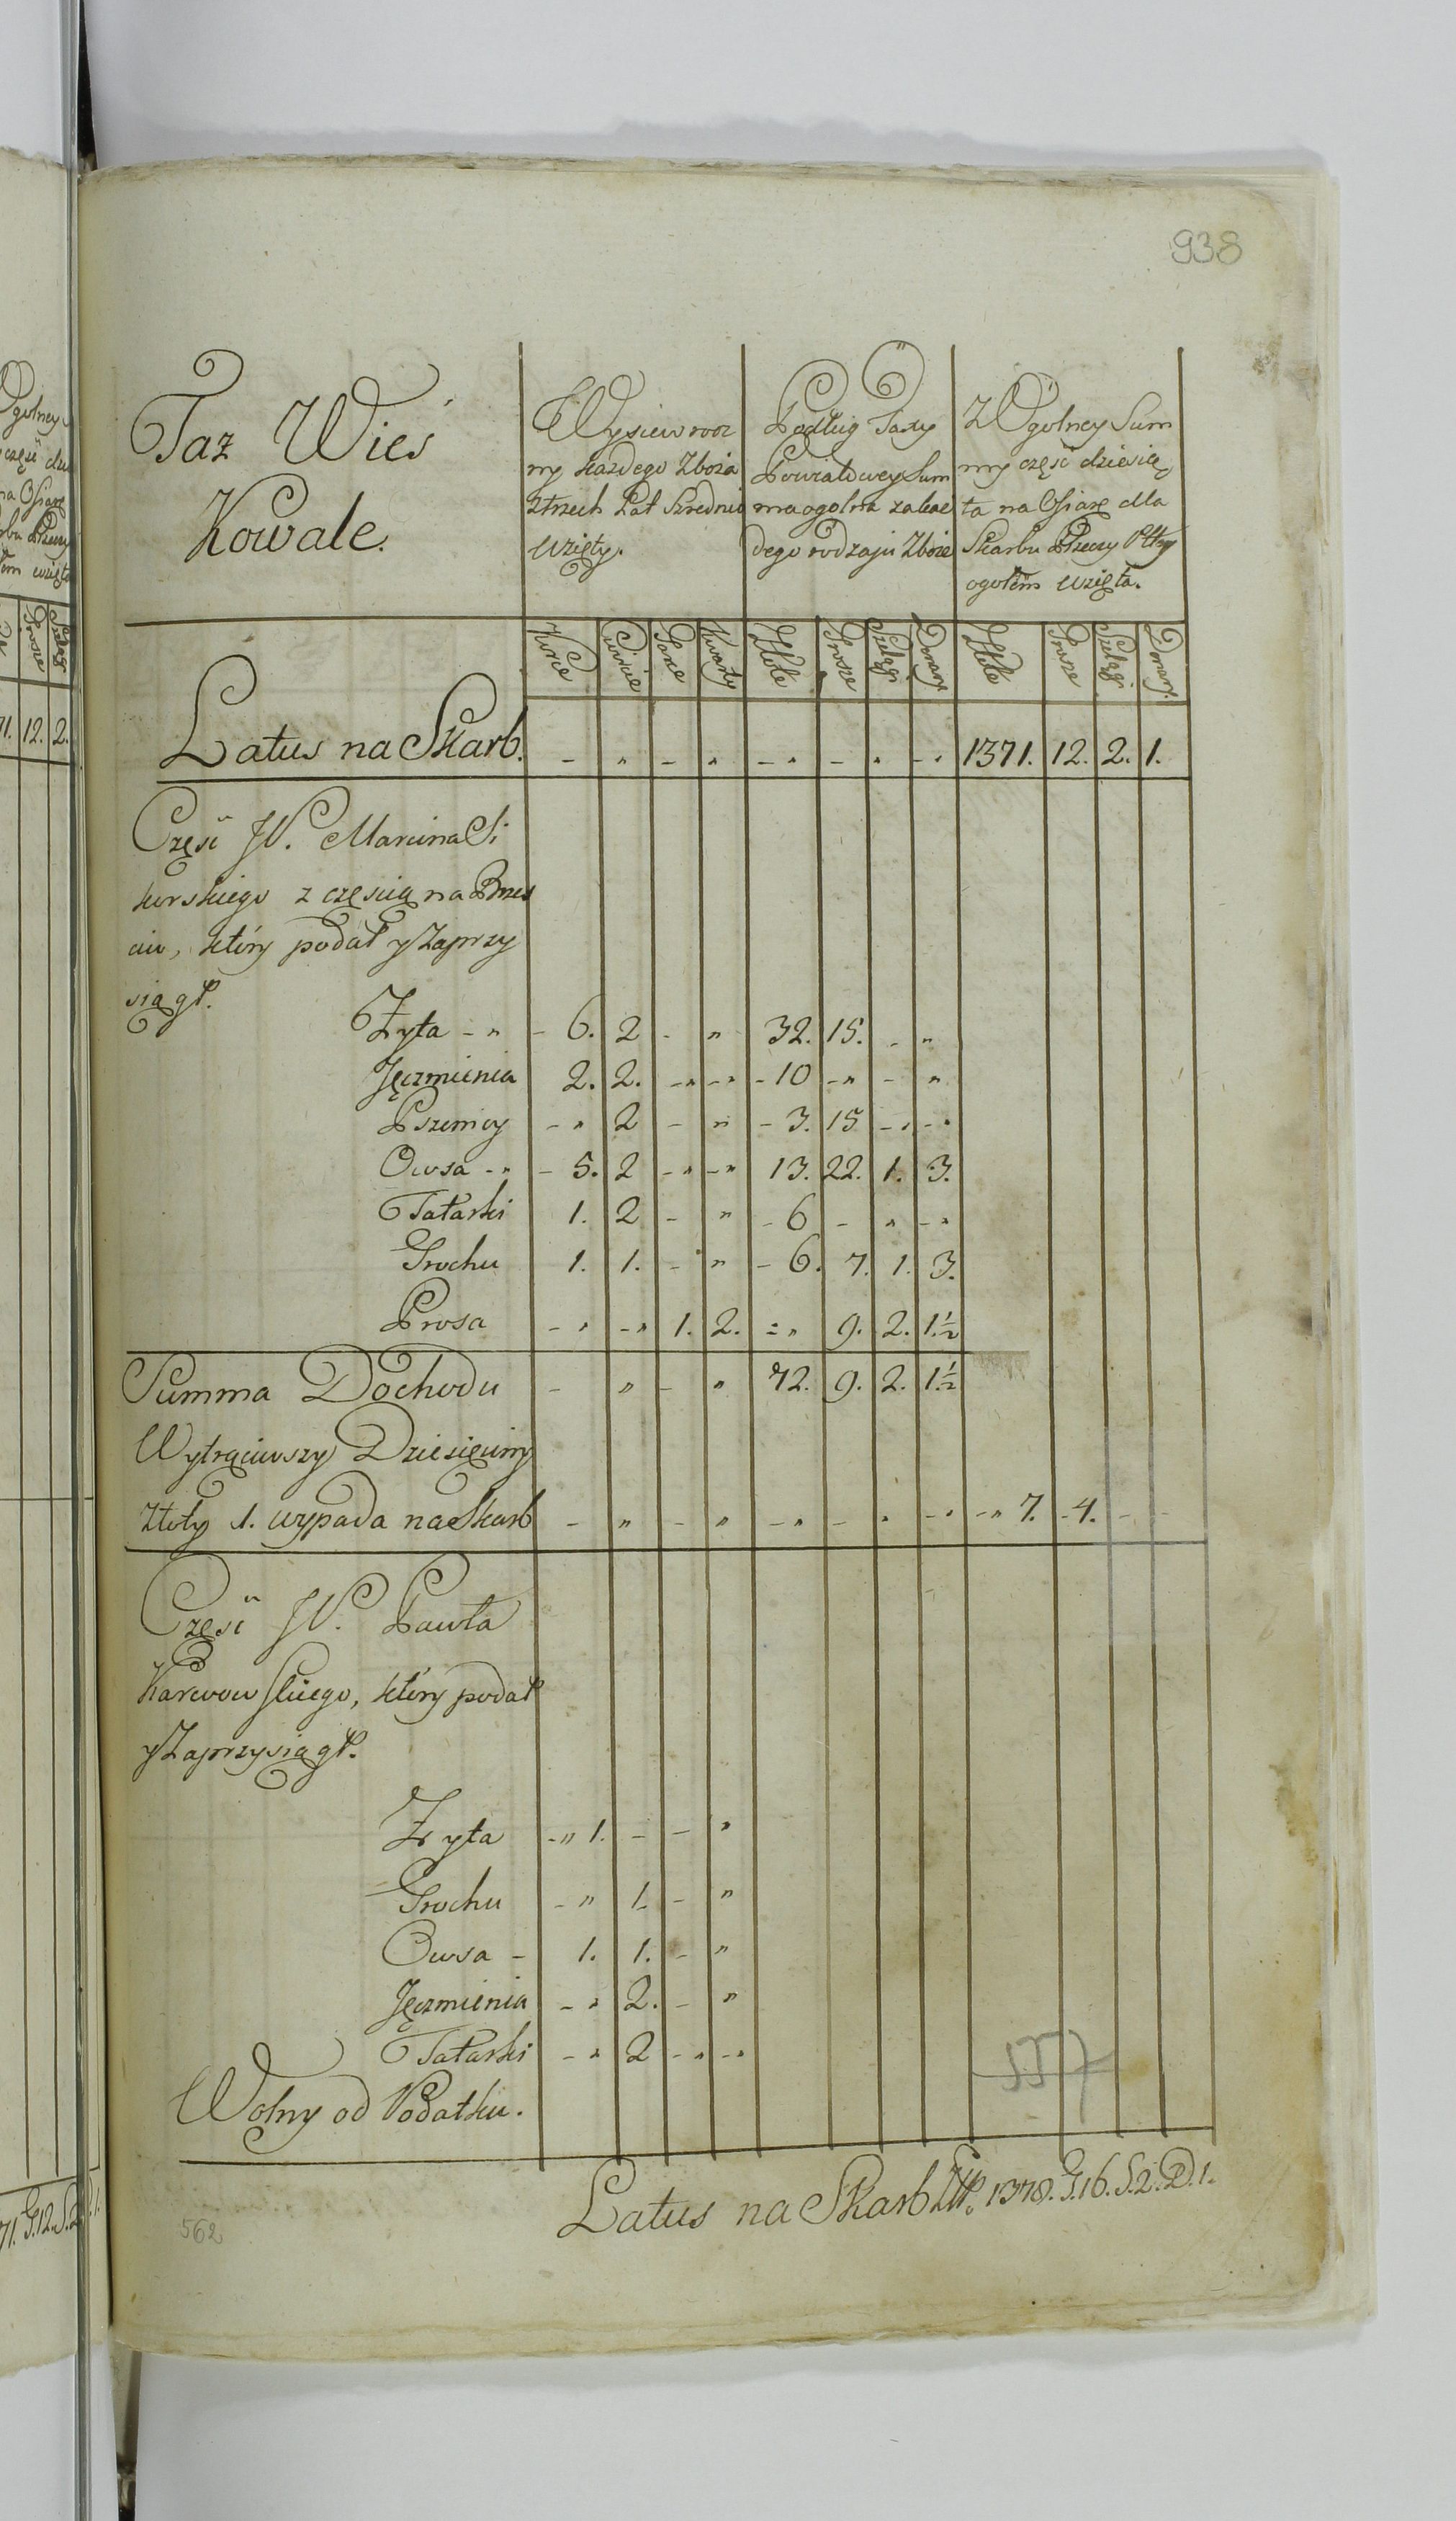 938
Taz Wieś
Kowale.
Wysiew rocz
ny każdego Zboża
z trzech Lat Srednio
wzięty.
Podług Taxy
Powiatowey Sum
ma ogolna za każ
dego rodzaju Zboże
Z Ogolney Sum
my część dziesią
ta na Ofiarę dla
Skarbu Rzeczy Pltey
ogołem wzięta.
Korce Cwierci Garce Kwarty Złote Grosze Szelągi Denary Złote Grosze Szelągi Denary.
Latus na Skarb. - " - " - " - " - " 1371. 12. 2. 1.
Część JP. Marcina Si
kurskiego z częścią na Brzes
ciu, który podał y Zaprzy
siągł.
Zyta - " - 6. 2 - " 32. 15. - "
Jęczmienia 2. 2. - " - " - 10 - " - "
Pszenicy - " 2 - " - 3. 15 - " - "
Owsa - " - 5. 2 - " - " 13. 22. 1. 3.
Tatarki 1. 2 - " - 6 - " - "
Grochu 1. 1. - " - 6. 7. 1. 3.
Prosa - " - " 1. 2. - " 9. 2. 1.½
Summa Dochodu - " - " 72. 9. 2. 1.½
Wytrąciwszy Dziesięciny
złoty 1. wypada na Skarb - " - " - " - " - " - " 7. - 4. - -
Część JP. Pawła
Karwowskiego, który podał
y Zaprzysiągł.
Zyta - " 1. - - "
Grochu - " 1. - "
Owsa - 1. 1. - "
Jęczmienia - " 2. - "
Tatarki - " 2 - " - "
Wolny od Podatku.
557
Latus na Skarb Złł. 1378. G. 16. S. 2. D. 1.
562